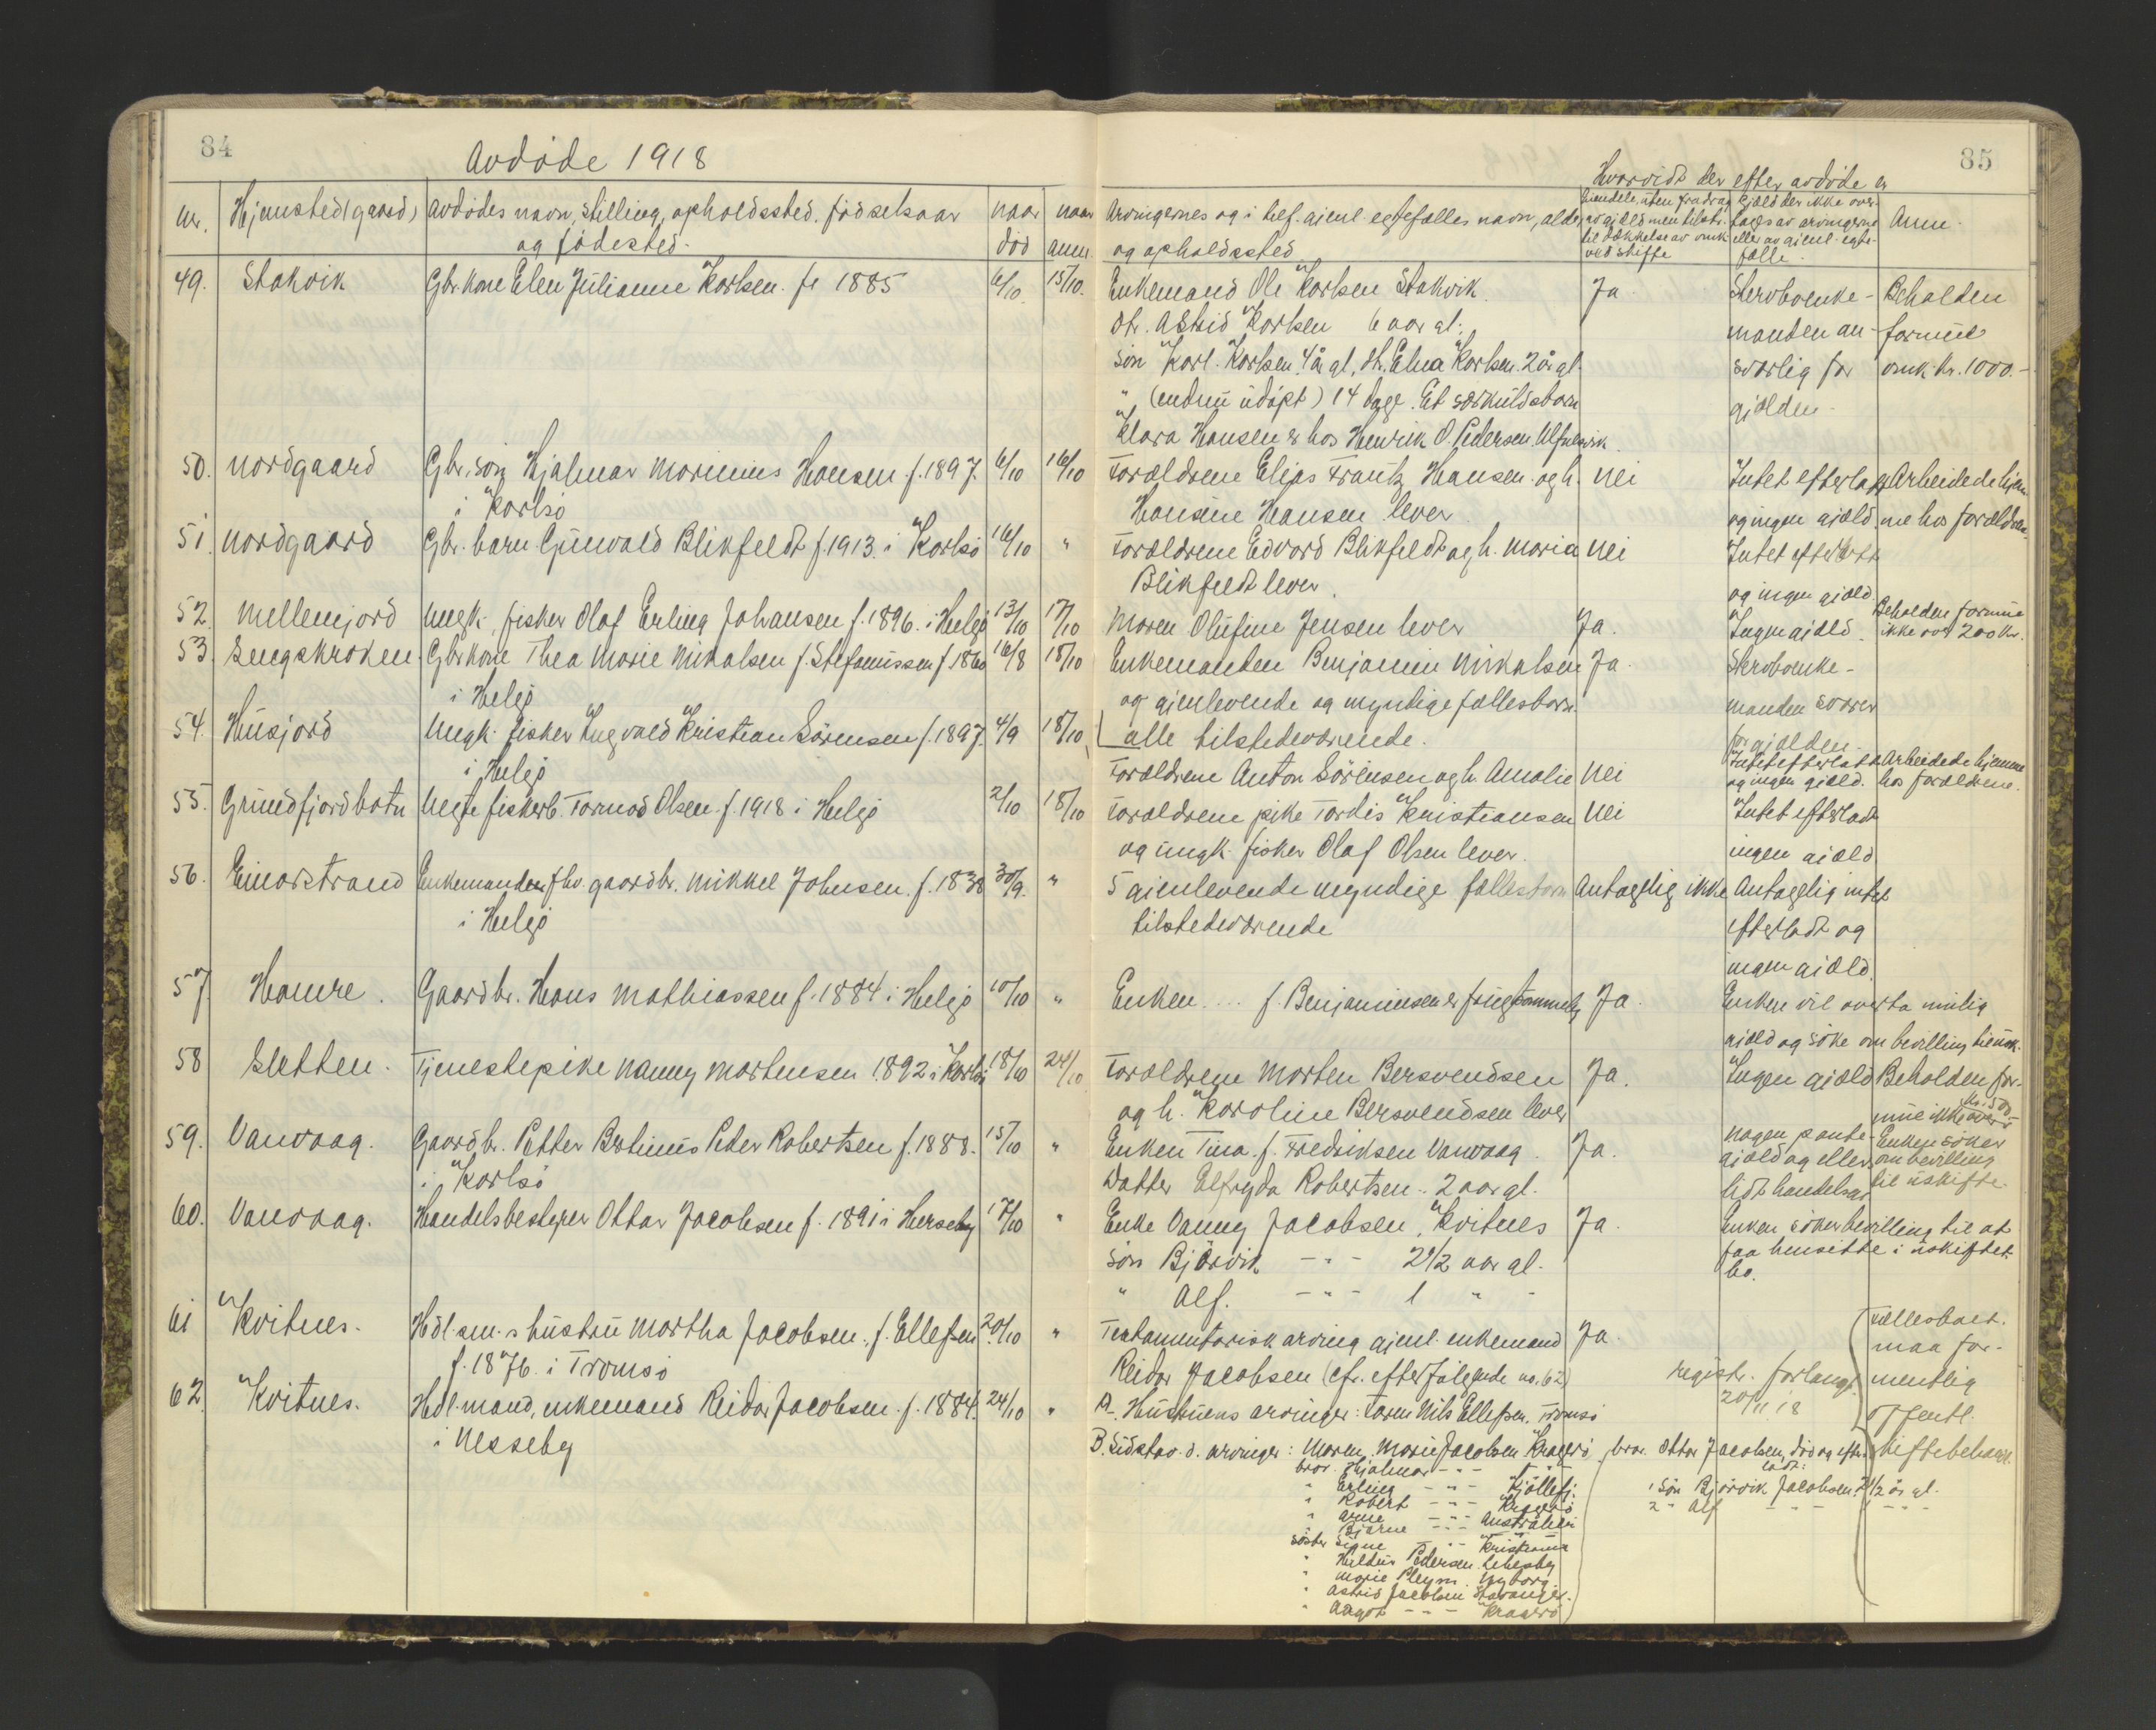 84
Avdøde 1918
nr. Hjemsted (gaard) Avdødes navn, stilling, opholdssted, fødselsaar naar naar
og fødested. død anm.
49. Stakvik Gbr. kone Elen Julianne Karlsen. fr 1885 6/10 15/10.
50. Nordgaard Gbr. søn Hjalmar Marinius Hansen f. 1897. 6/10 16/10
i Karlsø
51. Nordgaard Gbr. barn Gunvald Blikfeldt f. 1913. i Karlsø 16/10 "
52. Mellemjord Ungk., fisker Olaf Erling Johansen f. 1896. i Helgø 13/10 17/10
53. Sengskroken. Gbr. kone Thea Marie Mikalsen f. Stefanussen f. 1860 16/8 18/10
i Helgø
54. Husjord Ungk. fisker Ingvald Kristian Sørensen f. 1897. 4/9 18/10
i Helgø
55. Grundfjordbotn Uegte fiskerb. Tormod Olsen f. 1918 i Helgø 2/10 18/10
56. Einarstrand Enkemanden fhv. gaardbr. Mikkel Johnsen. f. 1838 30/9. "
i Helgø
57. Hamre. Gaardbr. Hans Mathiassen f. 1884 i Helgø 10/10 "
58 Sletten. Tjenestepike Nanny Mortensen 1892 i Karlsø 18/10 24/10
59. Vanvaag. Gaardbr. Petter Peder Robertsen f. 1888. 15/10 "
i Karlsø
60. Vanvaag. Handelsbestyrer Ottar Jacobsen f. 1891 i 17/10 "
61 Kvitnes. Hdl.sm.s hustru Martha Jacobsen. f. Ellefsen 20/10 "
f. 1876. i Tromsø
62. Kvitnes. Hdl.mand, enkemand Reidar Jacobsen. f. 1884. 24/10 "
i Nesseby
85
Hvorvidt der efter avdøde er
Arvingernes og i tilf. gjenl. egtefælles navn, alder,
og opholdssted
Eiendele, uten fradrag
av gjæld men tilstr.
til dækkelse av omk.
ved skifte
Gjæld der ikke over-
tages av arvingerne
eller av gjenl. egte-
fælle.
Anm.
Enkemand Ole Karlsen Stakvik. Ja Stervboenke- Beholden
dtr. Astrid Karlsen 6 aar gl. manden an- formue
søn Karl Karlsen 4 år gl., dtr. Elna Karlsen. 2 år gl. svarlig for omk. kr. 1000.-
" (endnu udøpt) 14 dage. Et særkuldsbarn gjælden.
Klara Hansen er hos Henrik O. Pedersen.
Forældrene Elias Frantz Hansen og h. Nei Intet efterladt Arbeidede hjem-
Hansine Hansen lever og ingen gjæld me hos forældrene
Forældrene Edvard Blikfeldt og h. Maria Nei Intet efterladt
Blikfeldt lever. og ingen gjæld.
Moren Olufine Jensen lever Ja. Ingen gjæld. Beholden formue
ikke over 200 kr.
Enkemanden Benjamin Mikalsen Ja. Stervboenke-
og gjenlevende og myndige fællesbarn. manden svarer
alle tilstedeværende. for gjælden.
Forældrene Anton Sørensen og h. Amalie Nei Intet efterladt Arbeidede hjemme
og ingen gjæld. hos forældrene.
Forældrene pike Tordis Kristiansen Nei Intet efterladt
og ungk. fisker Olaf Olsen lever. ingen gjæld
5 gjenlevende myndige fællesbarn Antagelig ikke Antagelig intet
tilstedeværende efterladt og
ingen gjæld.
Enken .... f. Benjaminsen er Ja. Enken vil overta mulig
gjæld og søke om bevilling til usk.
Forældrene Morten Bersvendsen Ja. Ingen gjæld Beholden for-
og h. Karoline Bersvendsen lever mue ikke over
Enken Tina f. Fredriksen Vanvaag. Ja. Nogen pante- Enken søker
gjæld og ellers om bevilling
Datter Elfryda Robertsen. 2 aar gl. lidt handelsgj. til uskifte.
Enke Vanny Jacobsen, Kvitnes Ja. Enken søker bevilling til at
søn Bjørvik -"- 2 1/2 aar gl. faa hensitte i uskiftet
bo.
" Alf. -"- 1 " -
Testamentarisk arving gjenl. enkemand Ja. Fællesboet.
maa for-
Reidar Jacobsen (cfr. efterfølgende no. 62) registr. forlangt mentlig
A. Hustruens arvinger: Faren Nils Ellefsen. Tromsø 20/11 18 offentl.
B. Sidstav. d. arvinger: Moren Marie Jacobsen Kragerø bror Ottar Jacobsen, død og efter- skiftebehan.
ladt:
bror Hjalmar -"-
" Erling -"- Kjøllefj. 1 søn Bjørvik Jacobsen 2 1/2 år gl.
" Robert -"- Kragerø 2 " Alf -"- 1 - " -
" Arne -"- Australien
" Bjarne -"- "
Søster Signe -"- Kristiania
" Huldur Pedersen Lebesby
" Marie Pleym. Nyborg.
" Astrid Jacobsen Stavanger.
" Aagot -"- Kragerø